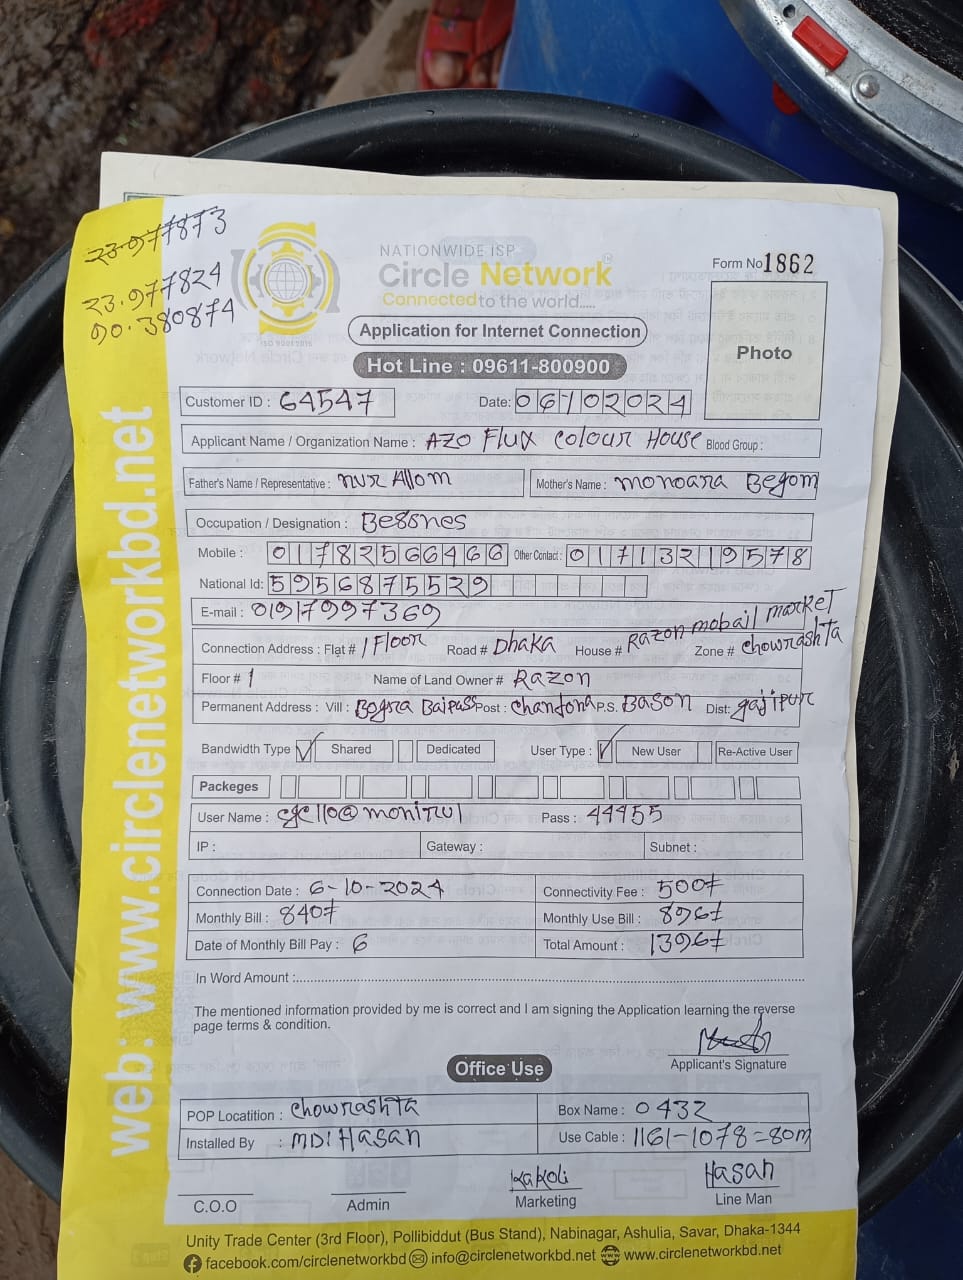 23.977873
23.977824
90.380874
ISO 9001:2015
NATIONWIDE ISP
Circle Network
Connected to the world.....
Form No 1862
Application for Internet Connection
Photo
Hot Line : 09611-800900
Customer ID : 64547 Date: 06102024
Applicant Name / Organization Name : AZO Flux Colour House Blood Group :
Father's Name / Representative : nur Allom Mother's Name : monoara Begom
Occupation / Designation : Bessnes
Mobile : 01782566466 Other Contact : 01713219578
National Id: 5956875529
E-mail : 01917997369
Connection Address : Flat # 1 Floor Road # Dhaka House # Razon mobail market Zone # chowrashta
Floor # 1 Name of Land Owner # Razon
Permanent Address : Vill : Bogra Baipass Post : Chandona P.S. Bason Dist: gajipur
Bandwidth Type Shared Dedicated User Type : New User Re-Active User
Packeges
User Name : @monirul Pass : 44455
IP : Gateway : Subnet :
Connection Date : 6-10-2024 Connectivity Fee : 500/=
Monthly Bill : 840/= Monthly Use Bill : 896/=
Date of Monthly Bill Pay : 6 Total Amount : 1396/=
In Word Amount :
The mentioned information provided by me is correct and I am signing the Application learning the reverse
page terms & condition.
Applicant's Signature
Office Use
POP Locatition : chowrashta Box Name : 0432
Installed By : MDI Hasan Use Cable : 1161-1078=80m
Kakoli Hasan
C.O.O Admin Marketing Line Man
Unity Trade Center (3rd Floor), Pollibiddut (Bus Stand), Nabinagar, Ashulia, Savar, Dhaka-1344
facebook.com/circlenetworkbd info@circlenetworkbd.net www.circlenetworkbd.net
web: www.circlenetworkbd.net